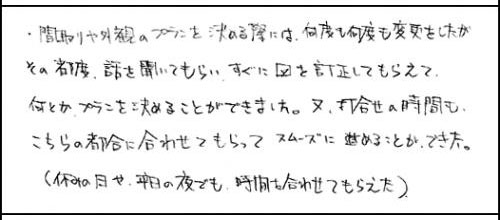 ・間取りや外観のプランを決める際には、何度も何度も変更をしたが
その都度、話を聞いてもらい、すぐに図を訂正してもらえて、
何とか、プランを決めることができました。又、打合せの時間も、
こちらの都合に合わせてもらって スムーズに 進めることが、できた。
(休みの日や、平日の夜でも、時間を合わせてもらえた)